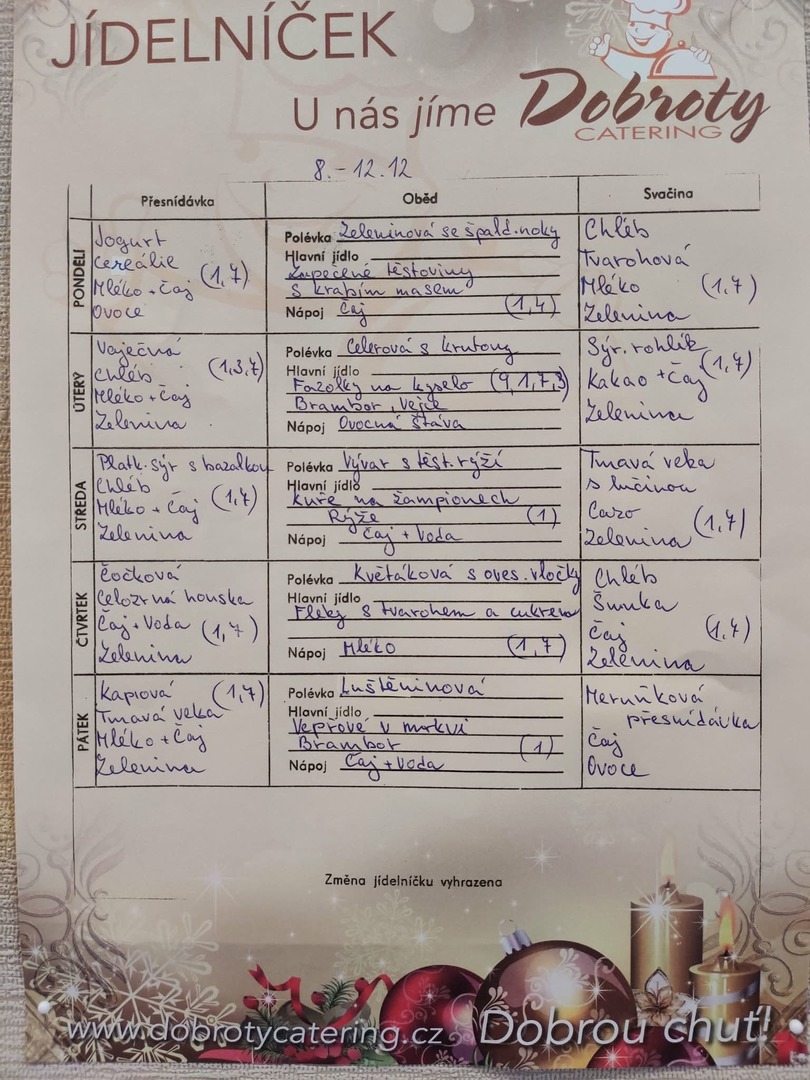 JÍDELNÍČEK
U nás jíme Dobroty
CATERING
8.-12.12
Přesnídávka Oběd Svačina
PONDĚLÍ
Jogurt
cereálie
Mléko + Čaj (1,7)
Ovoce
Polévka Zeleninová se špald. noky
Hlavní jídlo
Zapečené těstoviny
s krabím masem
Nápoj Čaj (1,4)
Chléb
Tvarohová
Mléko (1,7)
Zelenina
ÚTERÝ
Vaječná
Chléb (1,3,7)
Mléko + Čaj
Zelenina
Polévka Celerová s krutony
Hlavní jídlo
Fazolky na kyselo (9,1,7,3)
Brambor, Vejce
Nápoj Ovocná šťáva
Sýr. rohlík
Kakao + Čaj (1,7)
Zelenina
STŘEDA
Platk. sýr s bazalkou
Chléb
Mléko + Čaj (1,7)
Zelenina
Polévka Vývar s těst. rýží
Hlavní jídlo
Kuře na žampionech
Rýže (1)
Nápoj Čaj + Voda
Tmavá veka
s lučinou
Caro
Zelenina (1,7)
ČTVRTEK
Čočková
Celozrná houska
Čaj + Voda (1,7)
Zelenina
Polévka Květáková s oves. vločky
Hlavní jídlo
Fleky s tvarohem a cukrem
Nápoj Mléko (1,7)
Chléb
Šunka
Čaj (1,7)
Zelenina
PÁTEK
Kapiová (1,7)
Tmavá veka
Mléko + Čaj
Zelenina
Polévka Luštěninová
Hlavní jídlo
Vepřové v mrkvi
Brambor (1)
Nápoj Čaj + Voda
Meruňková
přesnídávka
Čaj
Ovoce
Změna jídelníčku vyhrazena
www.dobrotycatering.cz Dobrou chuť!